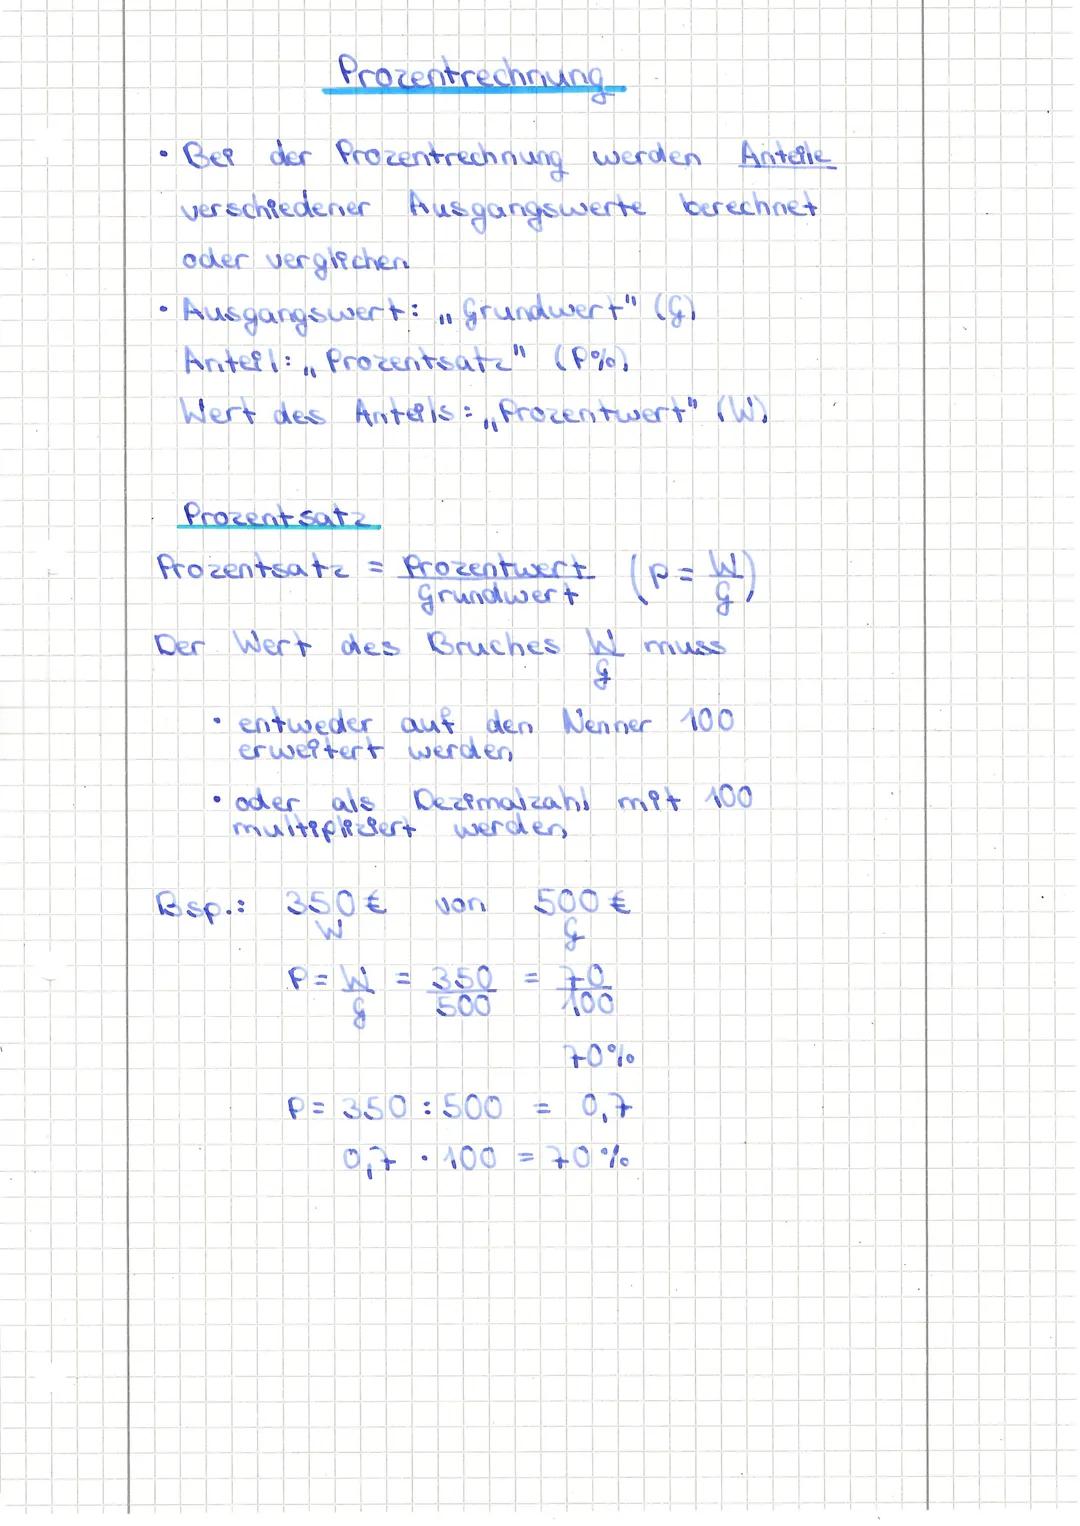 Prozentrechnung
• Bei der Prozentrechnung werden Anteile
verschiedener Ausgangswerte berechnet
oder verglichen
• Ausgangswert: „Grundwert" (G)
Anteil: „Prozentsatz" (P%)
Wert des Anteils: „Prozentwert" (W)
Prozentsatz
Prozentsatz = Prozentwert / Grundwert (P = W/G)
Der Wert des Bruches W/G muss
• entweder auf den Nenner 100
erweitert werden,
• oder als Dezimalzahl mit 100
multipliziert werden,
Bsp.: 350 € von 500 €
W G
P = W/G = 350/500 = 70/100
70%
P = 350 : 500 = 0,7
0,7 · 100 = 70 %